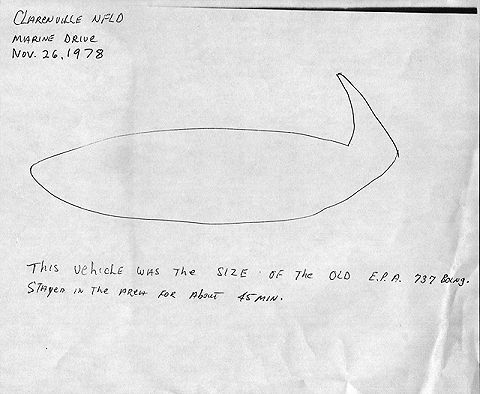 CLARENVILLE NFLD
MARINE DRIVE
NOV. 26, 1978
THIS VEHICLE WAS THE SIZE OF THE OLD E.P.A. 737 BOING.
STAYED IN THE AREA FOR ABOUT 45 MIN.